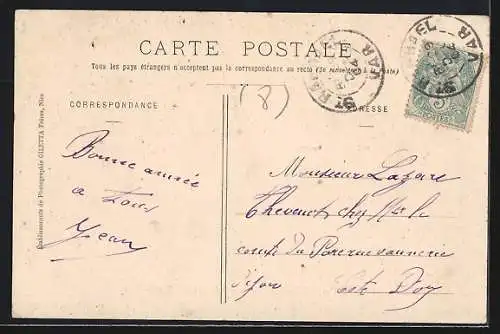 CARTE POSTALE
Tous les pays étrangers n'acceptent pas la correspondance au recto (Se renseigner à la poste)
CORRESPONDANCE
ADRESSE
Etablissements de Photographie GILETTA Frères, Nice
(8)
Bonne année
a tous
Jean
Monsieur Lazare
Thevenet chez Mr le
comte du
Dijon Cote Dor
ST RAPHAEL
VAR
ST RAPHAEL
VAR
5c
POSTES